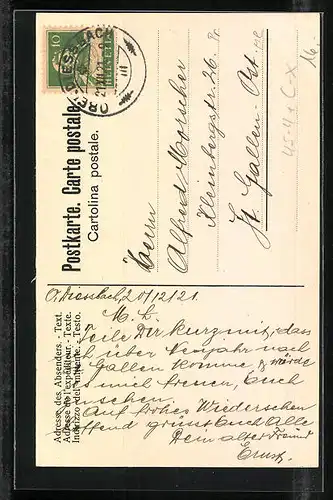 10
HELVETIA
OBERDIESSBACH
Postkarte. Carte postale.
Cartolina postale.
Herrn
Alfred Morscher
Kleinbergstr. 26.
St Gallen-Ost
Adresse des Absenders. - Text.
Adresse de l'expéditeur. - Texte.
Indirizzo del mittente. - Testo.
O. Diessbach, 20/12 21.
M. L.
Teile Dir kurz mit, dass
ich über Neujahr nach
St. Gallen komme, & würde
mich freuen, Euch
Auf frohes Wiedersehen
hoffend grüsst Euch Alle
Dein alter Freund
Ernst.